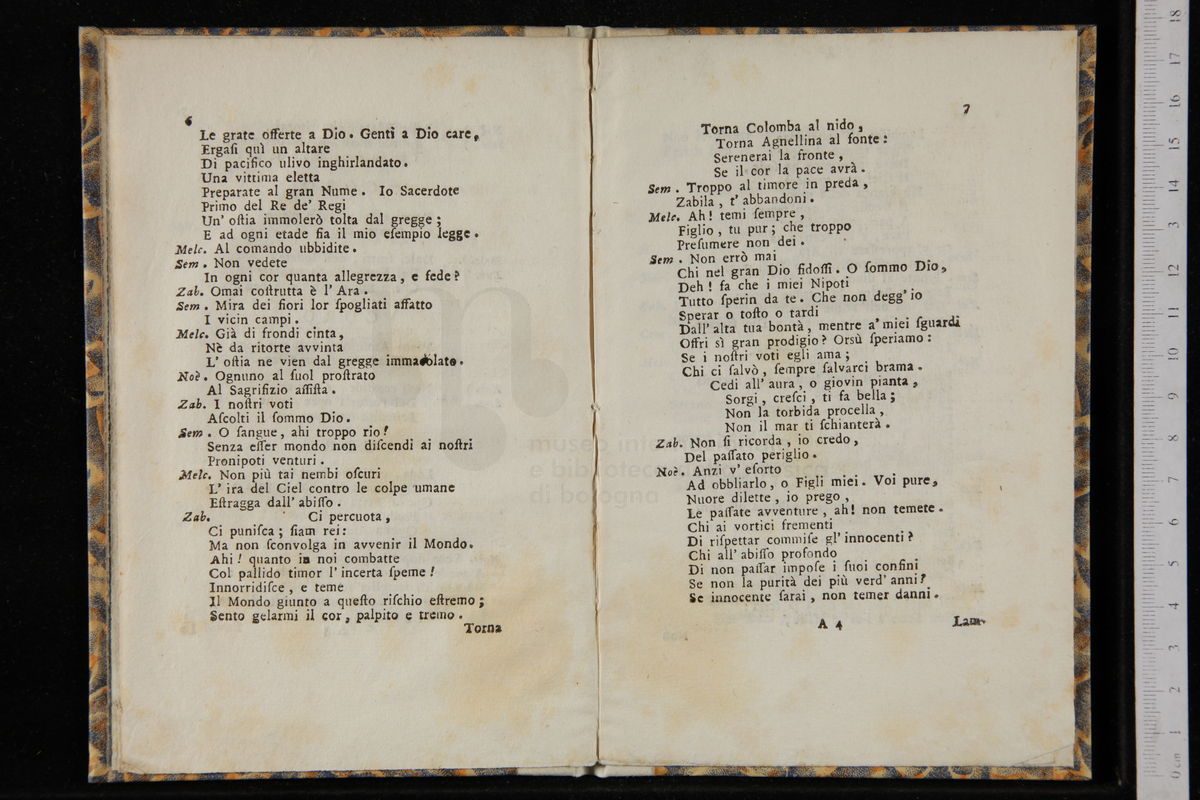 6
Le grate offerte a Dio. Genti a Dio care,
Ergaſi quì un altare
Di pacifico ulivo inghirlandato.
Una vittima eletta
Preparate al gran Nume. Io Sacerdote
Primo del Re de' Regi
Un' oſtia immolerò tolta dal gregge;
E ad ogni etade ſia il mio eſempio legge.
Melc. Al comando ubbidite.
Sem. Non vedete
In ogni cor quanta allegrezza, e fede?
Zab. Omai coſtrutta è l' Ara.
Sem. Mira dei fiori lor ſpogliati affatto
I vicin campi.
Melc. Già di frondi cinta,
Nè da ritorte avvinta
L' oſtia ne vien dal gregge immacolato.
Noè. Ognuno al ſuol proſtrato
Al Sagrifizio aſſiſta.
Zab. I noſtri voti
Aſcolti il ſommo Dio.
Sem. O ſangue, ahi troppo rio!
Senza eſſer mondo non diſcendi ai noſtri
Pronipoti venturi.
Melc. Non più tai nembi oſcuri
L' ira del Ciel contro le colpe umane
Eſtragga dall' abiſſo.
Zab. Ci percuota,
Ci puniſca; ſiam rei:
Ma non ſconvolga in avvenir il Mondo.
Ahi! quanto in noi combatte
Col pallido timor l' incerta ſpeme!
Innorridiſce, e teme
Il Mondo giunto a queſto riſchio eſtremo;
Sento gelarmi il cor, palpito e tremo.
Torna
7
Torna Colomba al nido,
Torna Agnellina al fonte:
Serenerai la fronte,
Se il cor la pace avrà.
Sem. Troppo al timore in preda,
Zabila, t' abbandoni.
Melc. Ah! temi ſempre,
Figlio, tu pur; che troppo
Preſumere non dei.
Sem. Non errò mai
Chi nel gran Dio fidoſſi. O ſommo Dio,
Deh! fa che i miei Nipoti
Tutto ſperin da te. Che non degg' io
Sperar o toſto o tardi
Dall' alta tua bontà, mentre a' miei ſguardi
Offri sì gran prodigio? Orsù ſperiamo:
Se i noſtri voti egli ama;
Chi ci ſalvò, ſempre ſalvarci brama.
Cedi all' aura, o giovin pianta,
Sorgi, creſci, ti fa bella;
Non la torbida procella,
Non il mar ti ſchianterà.
Zab. Non ſi ricorda, io credo,
Del paſſato periglio.
Noè. Anzi v' eſorto
Ad obbliarlo, o Figli miei. Voi pure,
Nuore dilette, io prego,
Le paſſate avventure, ah! non temete.
Chi ai vortici frementi
Di riſpettar commiſe gl' innocenti?
Chi all' abiſſo profondo
Di non paſſar impoſe i ſuoi confini
Se non la purità dei più verd' anni?
Se innocente ſarai, non temer danni.
A 4
Lam-
museo inte
e biblioteca
di bologna
0 cm 1 2 3 4 5 6 7 8 9 10 11 12 13 14 15 16 17 18